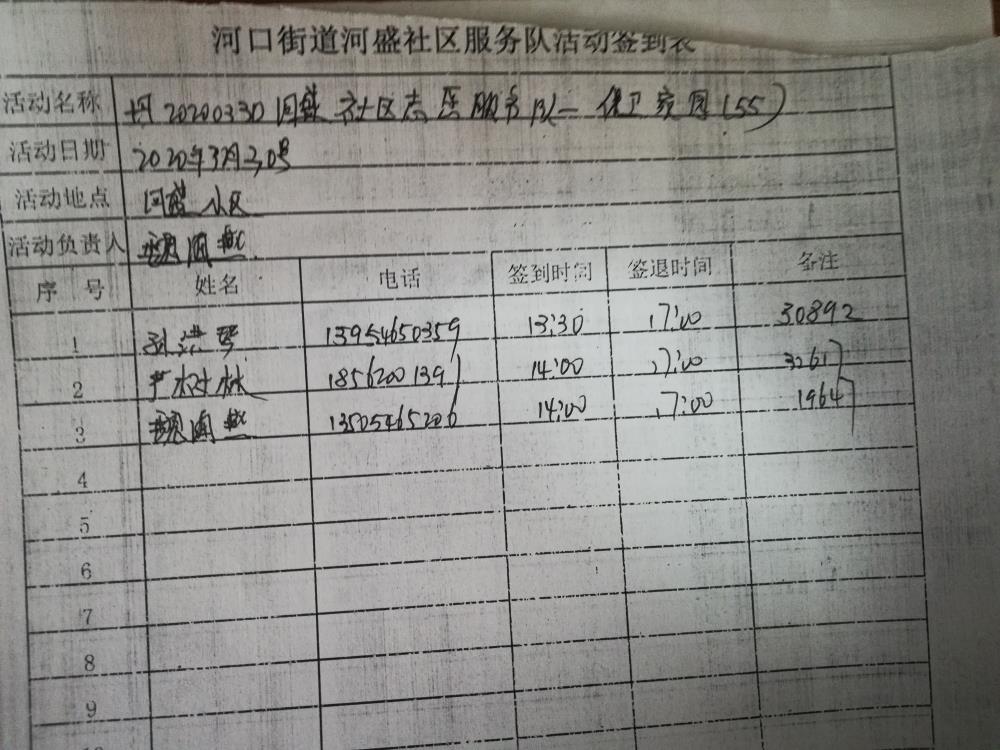 河口街道河盛社区服务队活动签到表
活动名称 20200330河盛社区志愿服务队一保卫家园(55)
活动日期 2020年3月30号
活动地点 河盛小区
活动负责人
序号 姓名 电话 签到时间 签退时间 备注
1 孙洪琴 13954650359 13:30 17:00 30892
2 严树林 18562001391 14:00 17:00 32617
3 13505465206 14:00 17:00 19647
4
5
6
7
8
9